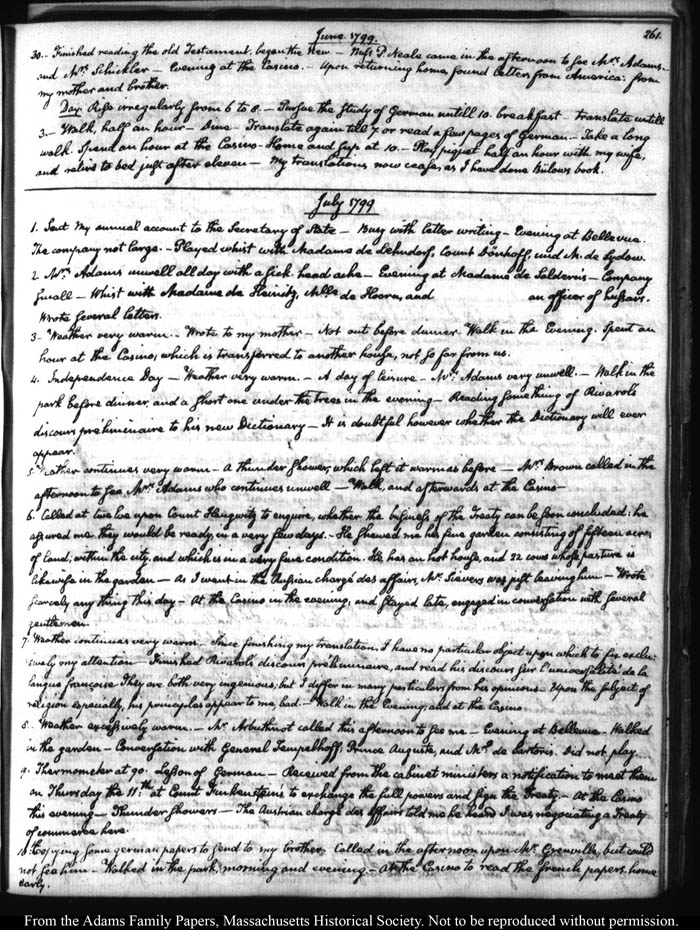 June 1799.
261.
30. Finished reading the old Testament, began the New. — Miss P. Neale came in the afternoon to see Mrs. Adams.
and Mrs. Schickler — Evening at the Casino. — Upon returning home, found letters from America: from
my mother and brother.
Day. Rise irregularly from 6 to 8. — Pursue the study of German untill 10. breakfast — translate untill
3. — Walk, half an hour — Dine — Translate again till 7 or read a few pages of German — Take a long
walk. Spend an hour at the Casino — Home and sup at 10. — Play piquet half an hour with my wife,
and retire to bed just after eleven — My translations now cease, as I have done Bülows book.
July 1799
1. Sent my annual account to the Secretary of State — Busy with letter writing — Evening at Bellevue.
The company not large. — Played whist with Madame de Lehndorf, Count Dönhoff, and M. de Sydow.
2. Mrs. Adams unwell all day with a sick head ache — Evening at Madame de Soldern's — Company
small — Whist with Madame de Heinitz, Mlle de Hoorn, and an officer of hussars.
Wrote several letters.
3. Weather very warm. — Wrote to my mother — Not out before dinner — Walk in the Evening. Spent an
hour at the Casino, which is transferred to another house, not so far from us.
4. Independence Day — Weather very warm. — A day of leisure. — Mrs. Adams very unwell. — Walk in the
park before dinner, and a short one under the trees in the evening — Reading something of Rivarols
discours préliminaire to his new Dictionary — It is doubtful however whether the Dictionary will ever
appear.
5. Weather continues very warm — A thunder shower, which left it warm as before — Mr. Brown called in the
afternoon to see Mrs. Adams who continues unwell — Walk, and afterwards at the Casino —
6. Called at twelve upon Count Haugwitz to enquire, whether the business of the Treaty can be soon concluded: he
assured me they would be ready, in a very few days. — He shewed me his fine garden consisting of fifteen acres
of land; within the city, and which is in a very fine condition. He has an hot house, and 22 cows whose pasture is
likewise in the garden — As I went in the Russian chargé des affairs, Mr. Sievers was just leaving him — Wrote
scarcely any thing this day — At the Casino in the evening, and stayed late, engaged in conversation with several
gentlemen.
7. Weather continues very warm — Since finishing my translation, I have no particular object upon which to fix exclu-
sively my attention — Finished Rivarols discours préliminaire, and read his discours sur l'universalité de la
langue françoise. They are both very ingenious; but I differ in many particulars from his opinions — Upon the subject of
religion especially, his principles appear to me, bad. — Walk in the Evening, and at the Casino.
8. Weather excessively warm. — Mr. Arbuthnot called this afternoon to see me — Evening at Bellevue. Walked
in the garden — Conversation with General Tempelhoff, Prince Augustus, and Mr. de Sartoris. Did not play.
9. Thermometer at 90. Lesson of German — Received from the cabinet ministers a notification to meet them
on Thursday the 11th. at Count Finkenstein's, to exchange the full powers and sign the Treaty. — At the Casino
this evening — Thunder showers — The Austrian chargé des affairs told me he heard I was negotiating a Treaty
of commerce here.
10. Copying some german papers to send to my brother. Called in the afternoon upon Mr. Grenville, but could
not see him. — Walked in the park, morning and evening — At the Casino to read the french papers. home
early.
From the Adams Family Papers, Massachusetts Historical Society. Not to be reproduced without permission.